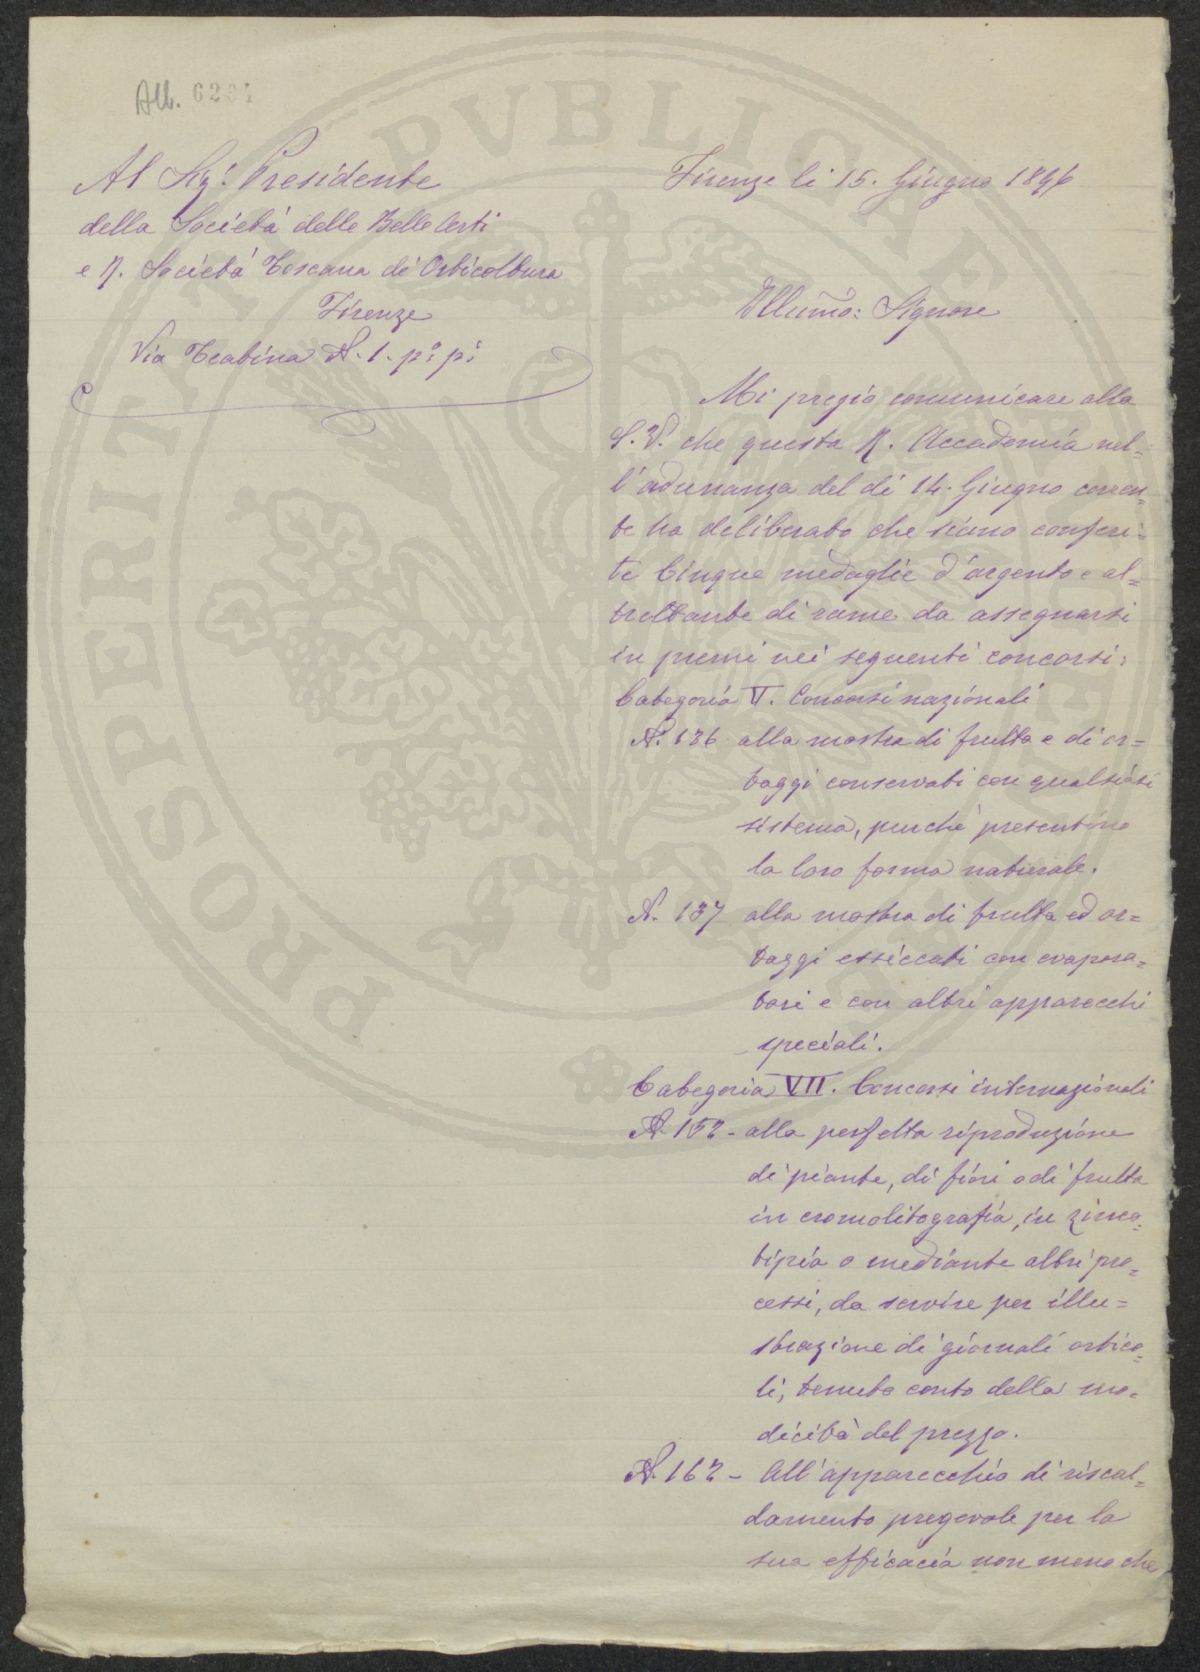 All. 6204
Al Sigr. Presidente
della Società delle Belle Arti
e R. Società Toscana di Orticoltura
Firenze
Via N. 1. p.o p.o
Firenze li 15. Giugno 1896
Illumo: Signore
Mi pregio comunicare alla
S. V. che questa R. Accademia nel-
l'adunanza del dì 14. Giugno corren-
te ha deliberato che siano conferi-
te Cinque medaglie d'argento e al=
trettante di rame da assegnarsi
in premi nei seguenti concorsi:
Categoria V. Concorsi nazionali
N. 136 alla mostra di frutta e di or=
taggi conservati con qualsiasi
sistema, purché presentino
la loro forma naturale.
N. 137 alla mostra di frutta ed or=
taggi essiccati con evapora=
tori e con altri apparecchi
speciali.
Categoria VII. Concorsi internazionali
N. 152 - alla perfetta riproduzione
di piante, di fiori o di frutta
in cromolitografia, in zinco-
tipia o mediante altri pro=
cessi, da servire per illu=
strazione di giornali ortico-
li, tenuto conto della mo=
dicità del prezzo.
N. 162 - All'apparecchio di riscal=
damento pregevole per la
sua efficacia non meno che
PROSPERITATI PVBLICAE